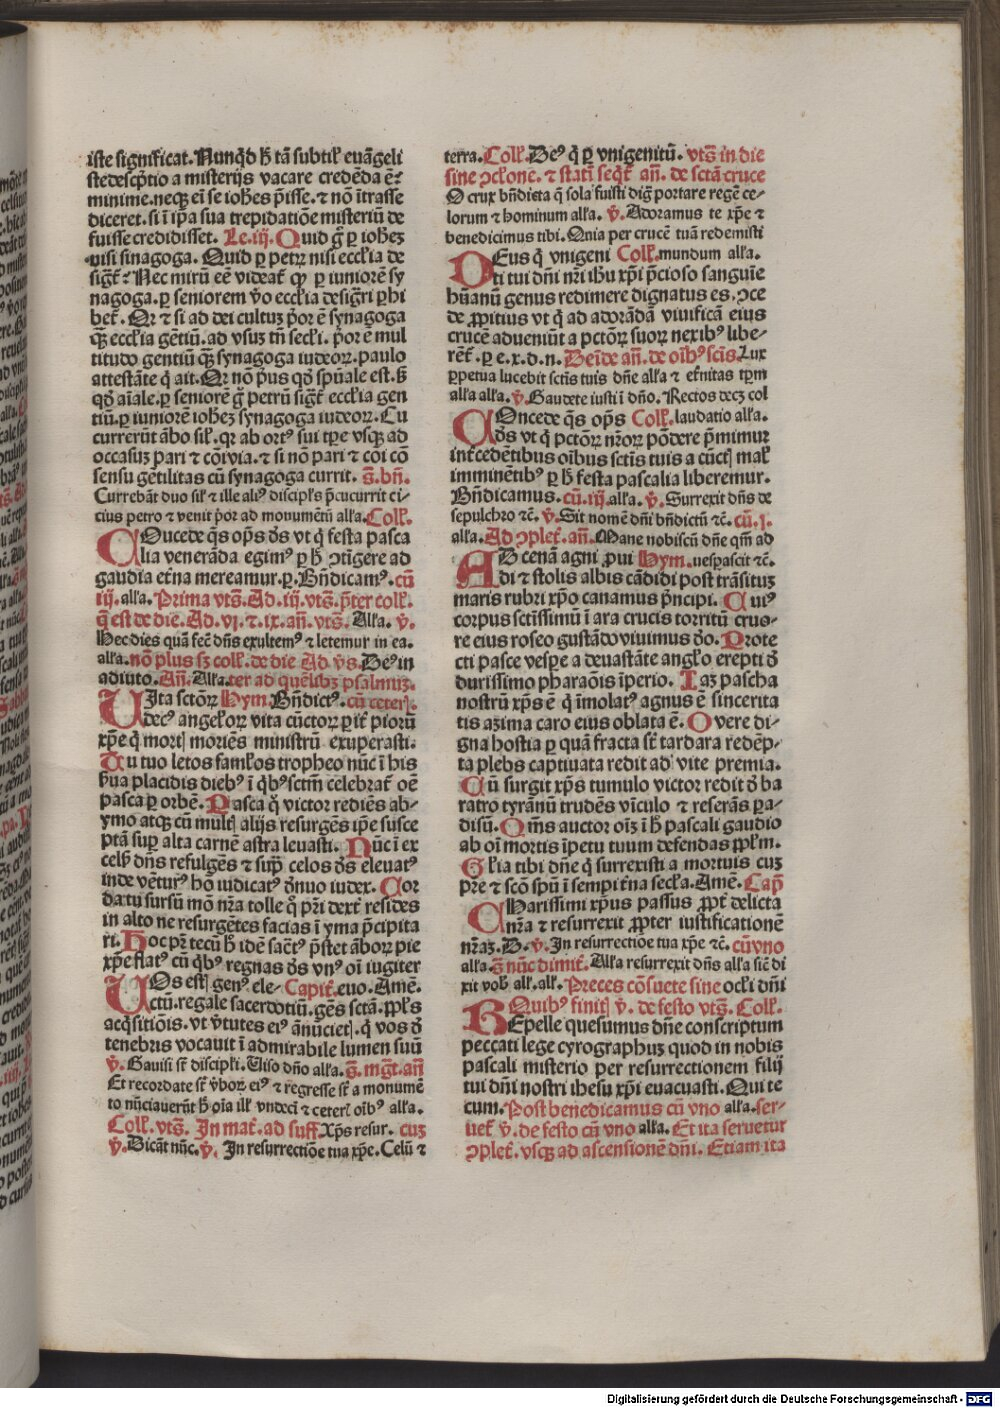 iste significat. Nunqͥd h̄ tā subtilꝭ euāgeli
stedescp̄tio a misterijs vacare credēda ē:
minime. neqꝫ ei se iohēs p̄isse. ⁊ nō ītrasse
diceret. si ī ip̄a sua trepidatiōe misteriū de
fuisse credidisset. Lc. iij. Quid g̊ ꝑ iohēꝫ
nisi sinagoga. Quid ꝑ petrꝫ nisi eccl̄ia de
sigt̄᷑ Nec mirū eē videat᷑ qꝫ ꝑ iuniorē sy
nagoga. ꝑ seniorem v̊o eccl̄ia desigri ꝑhi
bet᷑. Qꝛ ⁊ si ad dei cultuꝫ p̊or ē synagoga
qꝫ eccl̄ia gētiū. ad vsuꝫ tn̄ secl̄i. p̊or ē mul
titudo gentiū qꝫ synagoga iudeoꝝ. paulo
attestāte q̄ ait. Qꝛ nō pͥus qd̊ sp̄uale est. ß
qd̊ aīale. ꝑ seniorē g̊ petrū sigt̄᷑ eccl̄ia gen
tiū. ꝑ iuniorē iohēꝫ synagoga iudeoꝝ. Cu
currerūt ābo sil̄. qꝛ ab ortꝰ sui tꝑe vsqꝫ ad
occasuꝫ pari ⁊ cōi via. ⁊ si nō pari ⁊ cōi cō
sensu gētilitas cū synagoga currit. g̅. bn̄.
Currebāt duo sil̄ ⁊ ille aliꝰ discipl̄s p̄cucurrit ci-
cius petro ⁊ venit p̊or ad monumētū all̄a. Coll̄.
COncede q̄s op̄s d̄s vt q̄ festa pasca
lia venerāda egimꝰ ꝑ h̄ ↄtīgere ad
gaudia et̄na mereamur. ꝑ. Bn̄dicamꝰ. cū
iij. all̄a. Prima vts̄. Ad. iij. vts̄. p̄ter coll̄.
q̄ est de die. Ad. vj. ⁊ ix. an̄. vts̄. All̄a. v̄.
Hec dies quā fec̄ dn̄s exultemꝰ ⁊ letemur in ea.
all̄a. nō plus sꝫ coll̄. de die Ad v̄s. Deꝰ in
adiuto. An̄. All̄a. ter ad quēlibꝫ psalmuꝫ.
VIta sctōꝝ Hym. Bn̄dictꝰ. cū ceterꝭ.
decꝰ angel̄oꝝ vita cūctoꝝ ꝑit᷑ pioru
xp̄e q̄ mortꝭ moriēs ministrū exuperasti.
Tu tuo letos faml̄os tropheo nūc ī his
ßua placidis diebꝰ ī qͥbꝰ sctm̄ celebrat᷑ oē
pasca ꝑ orbē. Pasca q̊ victor rediēs ab-
ymo atqꝫ cū multꝭ alijs resurgēs ip̄e susce
ptā suꝑ alta carnē astra leuasti. Nūc ī ex
celsꝭ dn̄s refulgēs ⁊ suꝑ celos d̄s eleuatꝰ
inde vētuꝝ hō iudicatꝰ d̄nuo iudex. Cor
da tu sursū mō nr̄a tolle q̊ pr̄i dext᷑ resides
in alto ne resurgētes facias ī yma p̄cipita
ri. Hoc pr̄ tecū h̄ idē saētꝰ p̄stet āboꝝ pie
xp̄e flatꝰ cū qͥbꝰ regnas d̄s vnꝰ oī iugiter
VOs estꝭ genꝰ ele- Capit᷑. euo. Amē.
ctū. regale sacerdotiū. gēs sctā. ppl̄s
acqͥsitiōis. vt v̄tutes eiꝰ ānūcietꝭ. q̄ vos d̄
tenebris vocauit ī admirabile lumen suū
v̄. Gauisi st̄ discipl̄i. Viso dn̄o all̄a. g̅. mgt᷑. an̄
Et recordate st̄ ūboꝝ eiꝰ ⁊ regresse st̄ a monumē
to nūciauerūt h̄ oīa ill̄ vndecī ⁊ ceterꝭ oībꝰ all̄a.
Coll̄. vts̄. In mat᷑. ad suff. Xp̄s resur. cuꝫ
v̄. Dicāt nūc. v̄. In resurrectiōe tua xp̄e. Celū ⁊
terra. Coll̄. Deꝰ q̄ ꝑ vnigenitū. vts̄ in die
sine ↄctione. ⁊ statī seqt᷑ an̄. de sctā cruce
O crux bn̄dicta q̄ sola fuisti dig̅ portare regē ce-
lorum ⁊ hominum all̄a. v̄. Adoramus te xp̄e ⁊
benedicimus tibi. Quia per crucē tuā redemisti
DEus q̄ vnigeni Coll̄. mundum all̄a.
ti tui dn̄i nr̄i ihū xp̄i p̄cioso sanguīe
hūanū genus redimere dignatus es. ↄce
de ꝓpitius vt q̄ ad adorādā viuificā eius
crucē adueniūt a pctōꝝ suoꝝ nexibꝰ libe-
rēt᷑. ꝑ e. x. d. n. Deīde an̄. de oībꝰ sctis. Lux
ꝑpetua lucebit sctis tuis dn̄e all̄a ⁊ et̄nitas tꝑm
all̄a all̄a. v̄. Gaudete iusti ī dn̄o. Rectos decꝫ col
COncede q̄s op̄s Coll̄. laudatio all̄a.
d̄s vt q̄ pctōꝝ nr̄oꝝ pōdere p̄mimur
int̄cedētibus oībus sctis tuis a cūctꝭ mal̄
imminētibꝰ ꝑ h̄ festa pascalia liberemur.
Bn̄dicamus. cū. iij. all̄a. v̄. Surrexit dn̄s de
sepulchro ⁊c̄. v̄. Sit nomē dn̄i bn̄dictū ⁊c̄. cū. j.
all̄a. Ad ↄplet᷑. an̄. Mane nobiscū dn̄e qm̄ ad
AD cenā agni ꝓui Hym. uesꝑascit ⁊c̄.
di ⁊ stolis albis cādidi post trāsituꝫ
maris rubri xp̄o canamus p̄ncipi. Cuiꝰ
corpus sctissimū ī ara crucis torritū cruo-
re eius roseo gustādo viuimus d̄o. Prote
cti pasce vesꝑe a deuastāte angl̄o erepti d̄
durissimo pharaōis īperio. Iaꝫ pascha
nostrū xp̄s ē q̄ īmolatꝰ agnus ē sincerita
tis azima caro eius oblata ē. O vere di-
gna hostia ꝑ quā fracta st̄ tartara redēp-
ta plebs captiuata redit ad vite premia.
Cū surgit xp̄s tumulo victor redit d̄ ba
ratro tyrānū trudēs vīculo ⁊ reserās ꝑa-
disū. Qm̄s auctor oīꝫ ī h̄ pascali gaudio
ab oī mortis īpetu tuum defendas ppl̄m.
Gl̄ia tibi dn̄e q̄ surrexisti a mortuis cuꝫ
pr̄e ⁊ scō spū ī sempit̄na secl̄a. Amē. Cap̄
CHarissimi xp̄us passus ꝓpt᷑ delicta
nr̄a ⁊ resurrexit ꝓpter iustificationē
nr̄aꝫ. D. v̄. In resurrectiōe tua xp̄e ⁊c̄. cū vno
all̄a. g̅ nūc dimit᷑. All̄a resurrexit dn̄s all̄a sic̄ di
xit vob̄ all̄. all̄. Preces cōsuete sine ocl̄i dn̄i
RQuibꝰ finitꝭ v̄. de festo vts̄. Coll̄.
Epelle quesumus dn̄e conscriptum
peccati lege cyrographuꝫ quod in nobis
pascali misterio per resurrectionem filij
tui dn̄i nostri ihesu xp̄i euacuasti. Qui te
cum. Post benedicamus cū vno all̄a. ser-
uet᷑ v̄. de festo cū vno all̄a. Et ita seruetur
ↄplet᷑. vsqꝫ ad ascensionē dn̄i. Etiam ita
Digitalisierung gefördert durch die Deutsche Forschungsgemeinschaft - DFG